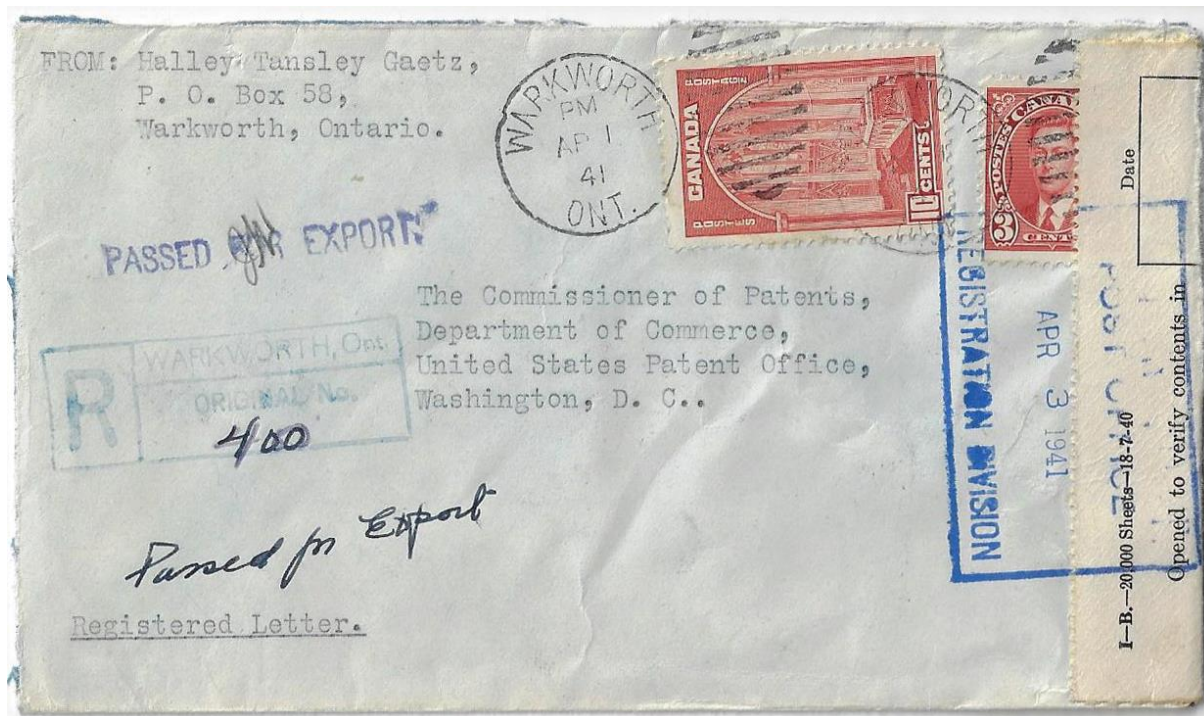 FROM: Halley Tansley Gaetz,
P. O. Box 58,
Warkworth, Ontario.
WARKWORTH
PM
AP 1
41
ONT.
POSTAGE
POSTES
CANADA
10 CENTS
POSTES CANADA
3 CENTS
PASSED FOR EXPORT
The Commissioner of Patents,
Department of Commerce,
United States Patent Office,
Washington, D. C..
R
WARKWORTH, Ont.
ORIGINAL No.
400
Passed for Export
Registered Letter.
REGISTRATION DIVISION
APR 3 1941
POST OFFICE
I—B.—20,000 Sheets—18-7-40
Opened to verify contents in
Date